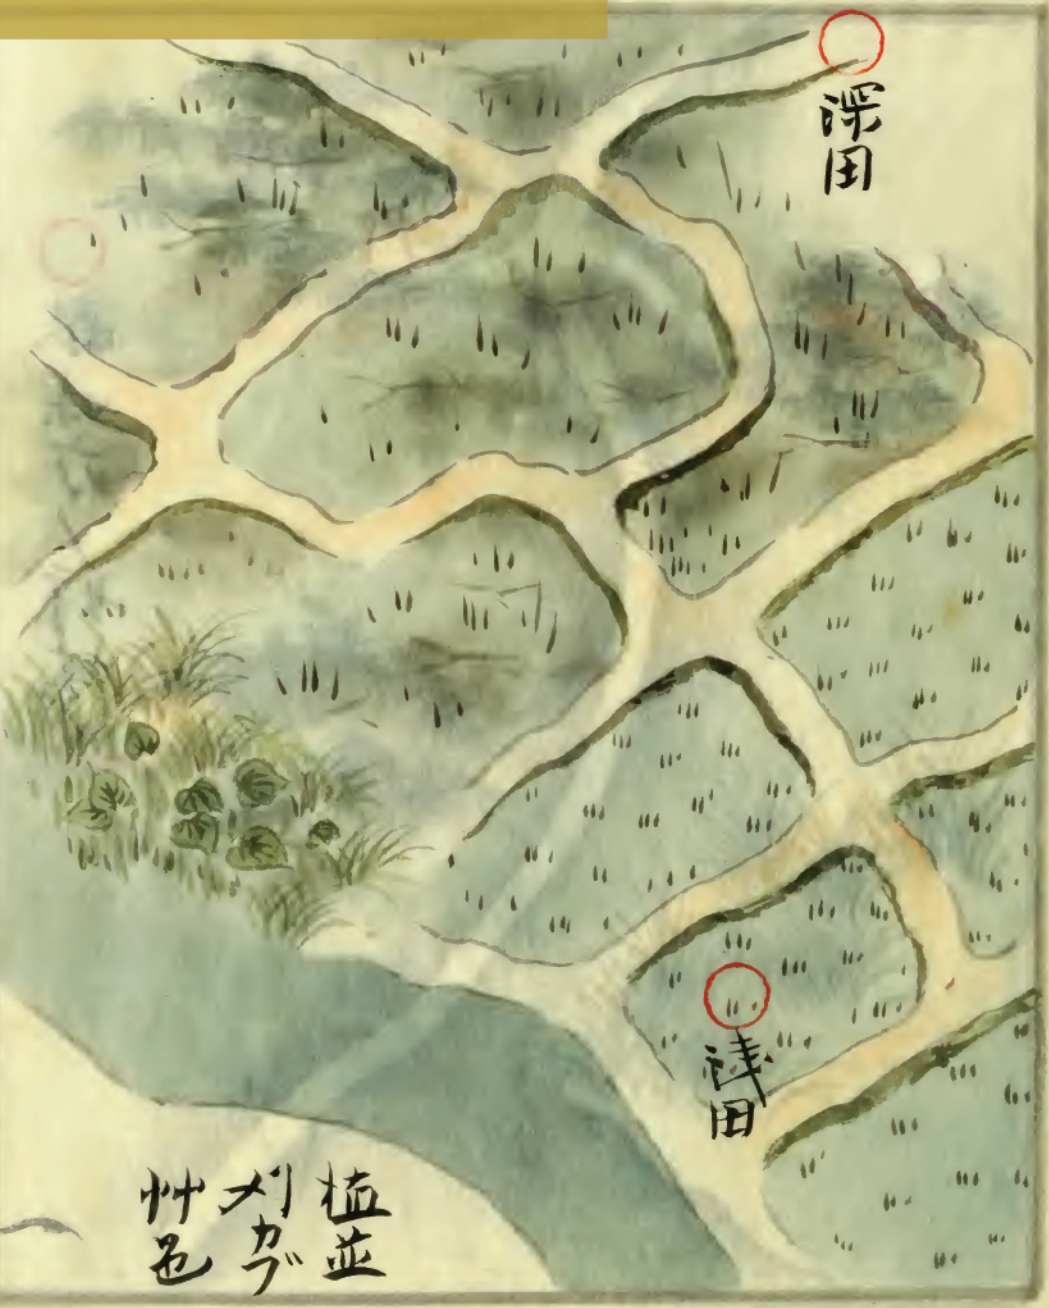 深田
浅田
植並
刈カブ
艸色